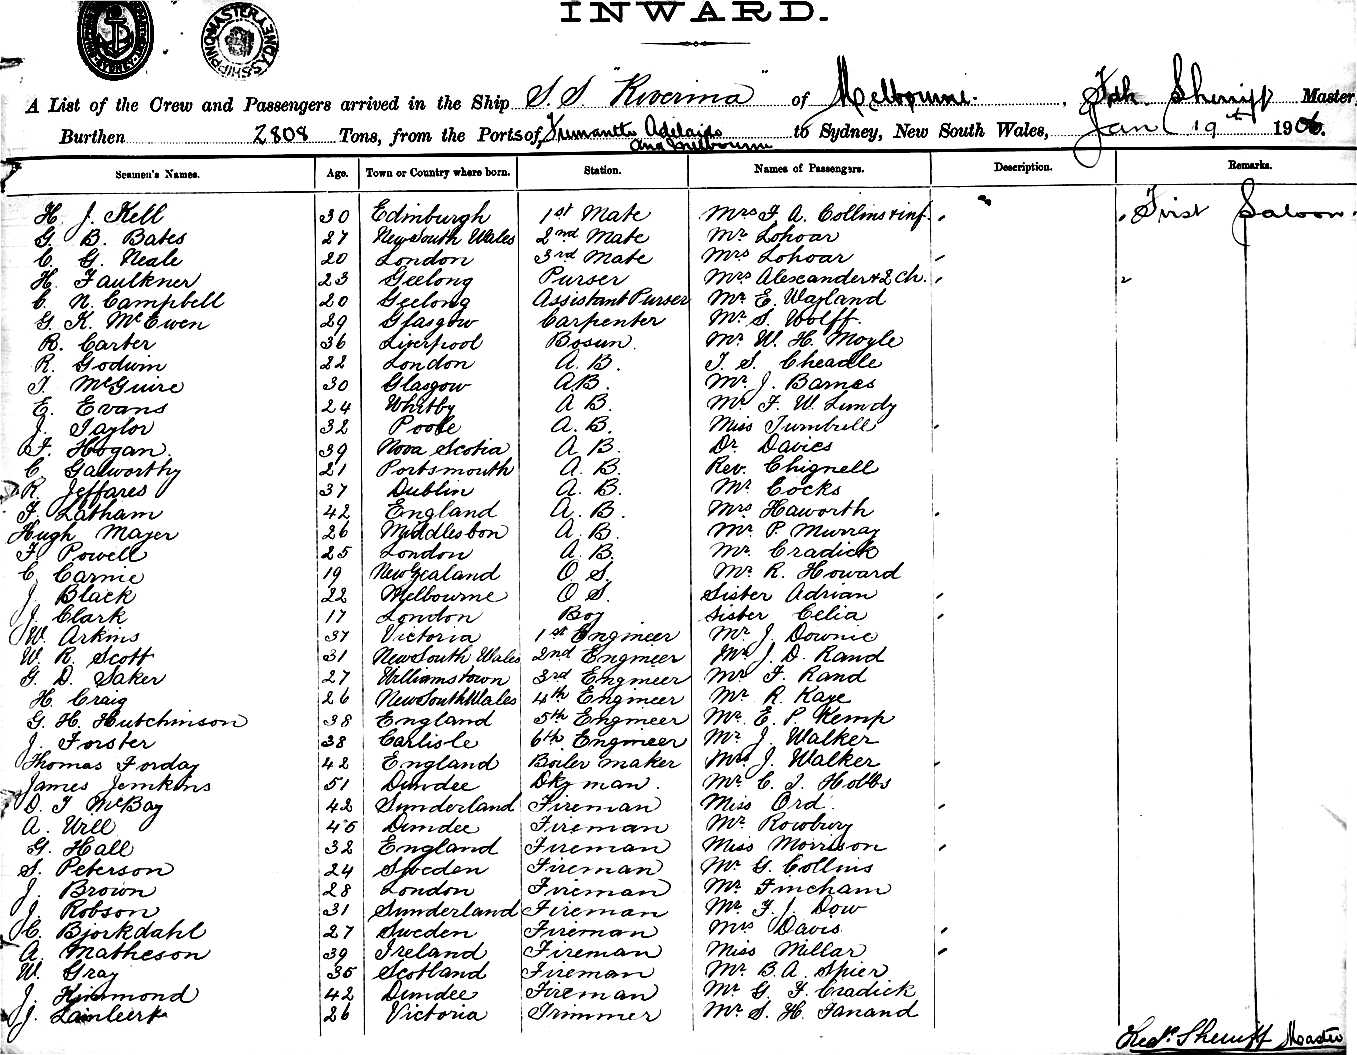 INWARD.
A List of the Crew and Passengers arrived in the Ship S.S "Riverina" of Melbourne. Sherriff Master
Burthen 2808 Tons, from the Ports of, Fremantle Adelaide and Melbourne to Sydney, New South Wales, Jan 19th 1906.
Seamen's Names. Age. Town or Country where born. Station. Names of Passengers. Description. Remarks.
H. J. Kell 30 Edinburgh 1st Mate Mrs F. A. Collins & inf. First Saloon.
G. B. Bates 27 New South Wales 2nd Mate Mr Lohoar
C. G. Neale 20 London 3rd Mate Mrs Lohoar
H. Faulkner 23 Geelong Purser Mrs Alexander & 2 Ch.
C. N. Campbell 20 Geelong Assistant Purser Mr E. Wayland
G. K. McEwen 29 Glasgow Carpenter Mr S. Wolff.
R. Carter 36 Liverpool Bosun. Mr W. H. Moyle
R. Godwin 22 London A. B. T. S. Cheadle
T. McGuire 30 Glasgow A.B. Mr J. Barnes
E. Evans 24 Whitby A B. Mr F. W. Lundy
J. Taylor 32 Poole A. B. Miss Turnbull
F. Hogan 39 Nova Scotia A B. Dr Davies
C. Galworthy 21 Portsmouth A. B. Rev. Chignell
R. Jeffares 37 Dublin A. B. Mr Cocks
F. Latham 42 England A. B. Mrs Haworth
Hugh Mayer 26 Middlesbon A. B. Mr P. Murray
F. Powell 25 London A. B. Mr Cradick
C Carnie 19 New Zealand O S. Mr R. Howard
J Black 22 Melbourne O S. Sister Adrian
J. Clark 17 London Boy Sister Celia
W. Arkins 37 Victoria 1st Engineer Mr J. Downie
W. R. Scott 31 New South Wales 2nd Engineer Mr J. D. Rand
G. D. Saker 27 Williamstown 3rd Engineer Mr F. Rand
H. Craig 26 New South Wales 4th Engineer Mr R. Kaye
G. H. Hutchinson 38 England 5th Engineer Mr E. P. Kemp
J. Forster 38 Carlisle 6th Engineer Mr J. Walker
Thomas Forday 42 England Boiler maker Mrs J. Walker
James Jemkins 51 Dundee Dky man. Mr C. J. Hobbs
D. T McBay 42 Sunderland Fireman Miss Ord.
A. Urll 45 Dundee Fireman Mr Rowbury
G. Hall 32 England Fireman Miss Morrison
S. Peterson 24 Sweden Fireman Mr G. Collins
J. Brown 28 London Fireman Mr Fincham
J. Robson 31 Sunderland Fireman Mr F. J. Dow
C. Bjorkdahl 27 Sweden Fireman Mrs Davis
A. Matheson 39 Ireland Fireman Miss Millar
W. Gray 35 Scotland Fireman Mr B. A. Spier
J. Kinmond 42 Dundee Fireman Mr G. F. Cradick
J. 26 Victoria Trimmer Mr S. H. Tanand
Sherriff Master